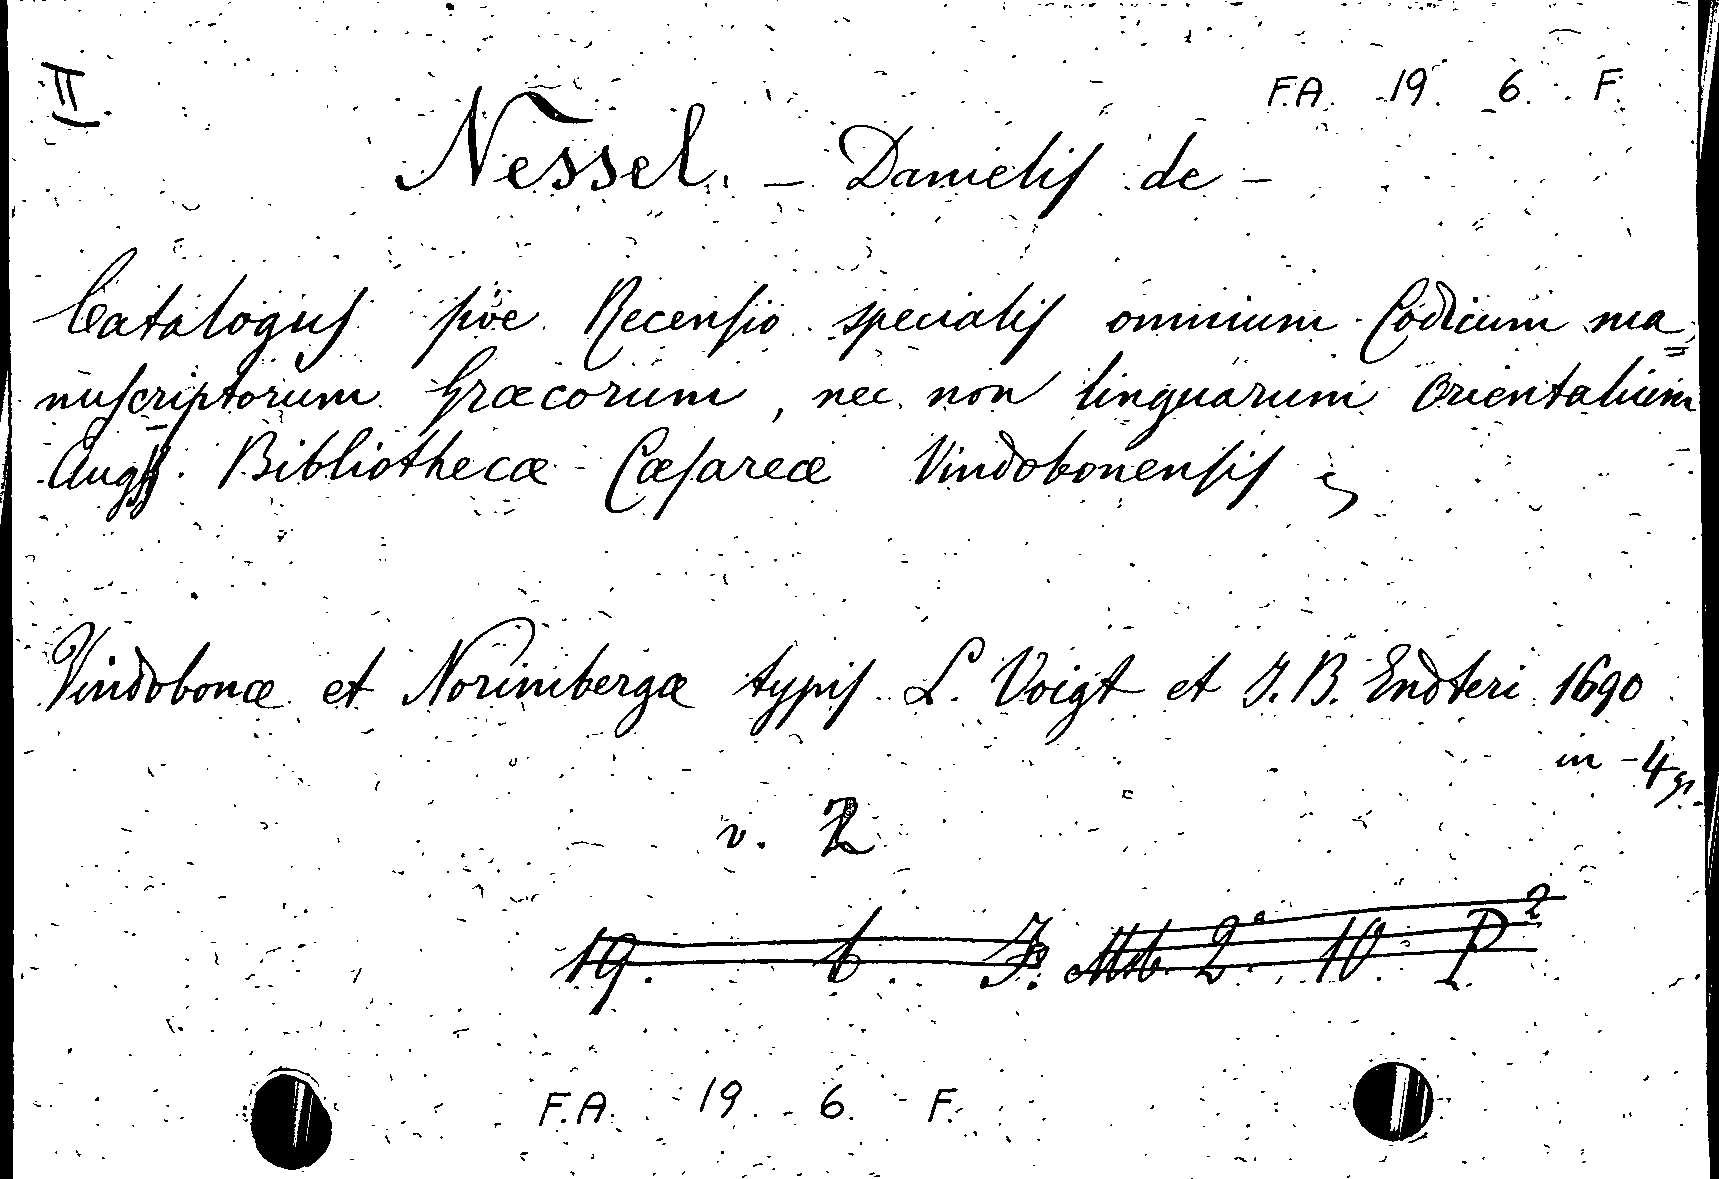 II
F.A. 19. 6. F.
Nessel. — Danielis de —
Catalogus sive Recensio specialis omnium Codicum ma=
nuscriptorum Græcorum, nec non linguarum Orientalium
Augss. Bibliothecæ Cæsareæ Vindobonensis
Vindobonæ et Norimbergæ typis L. Voigt et J. B. Endteri 1690
in - 4
v. 2
19. 6. F. 2° 10. P²
F.A. 19. 6. F.